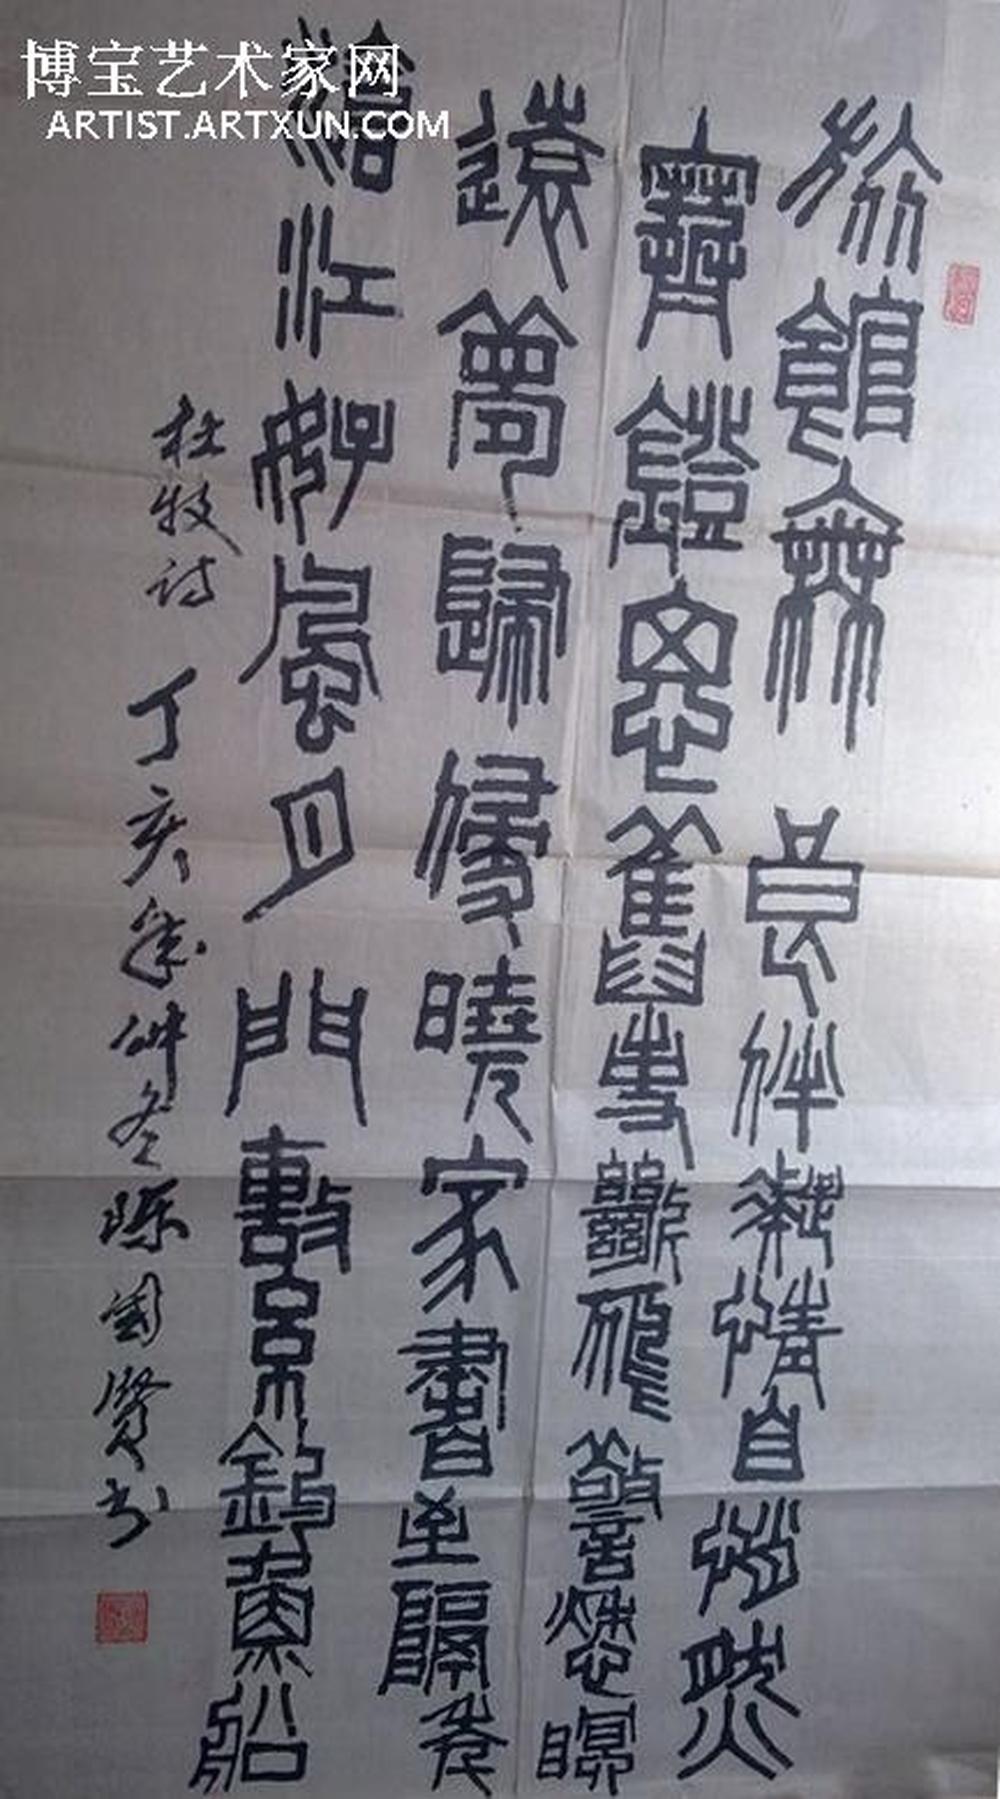 博宝艺术家网
ARTIST.ARTXUN.COM
旅館無良伴凝情自悄然
寒燈思舊事斷雁警愁眠
遠夢歸侵曉家書到隔年
滄江好風月門繫釣魚船
杜牧诗 丁亥年仲冬 国贤书